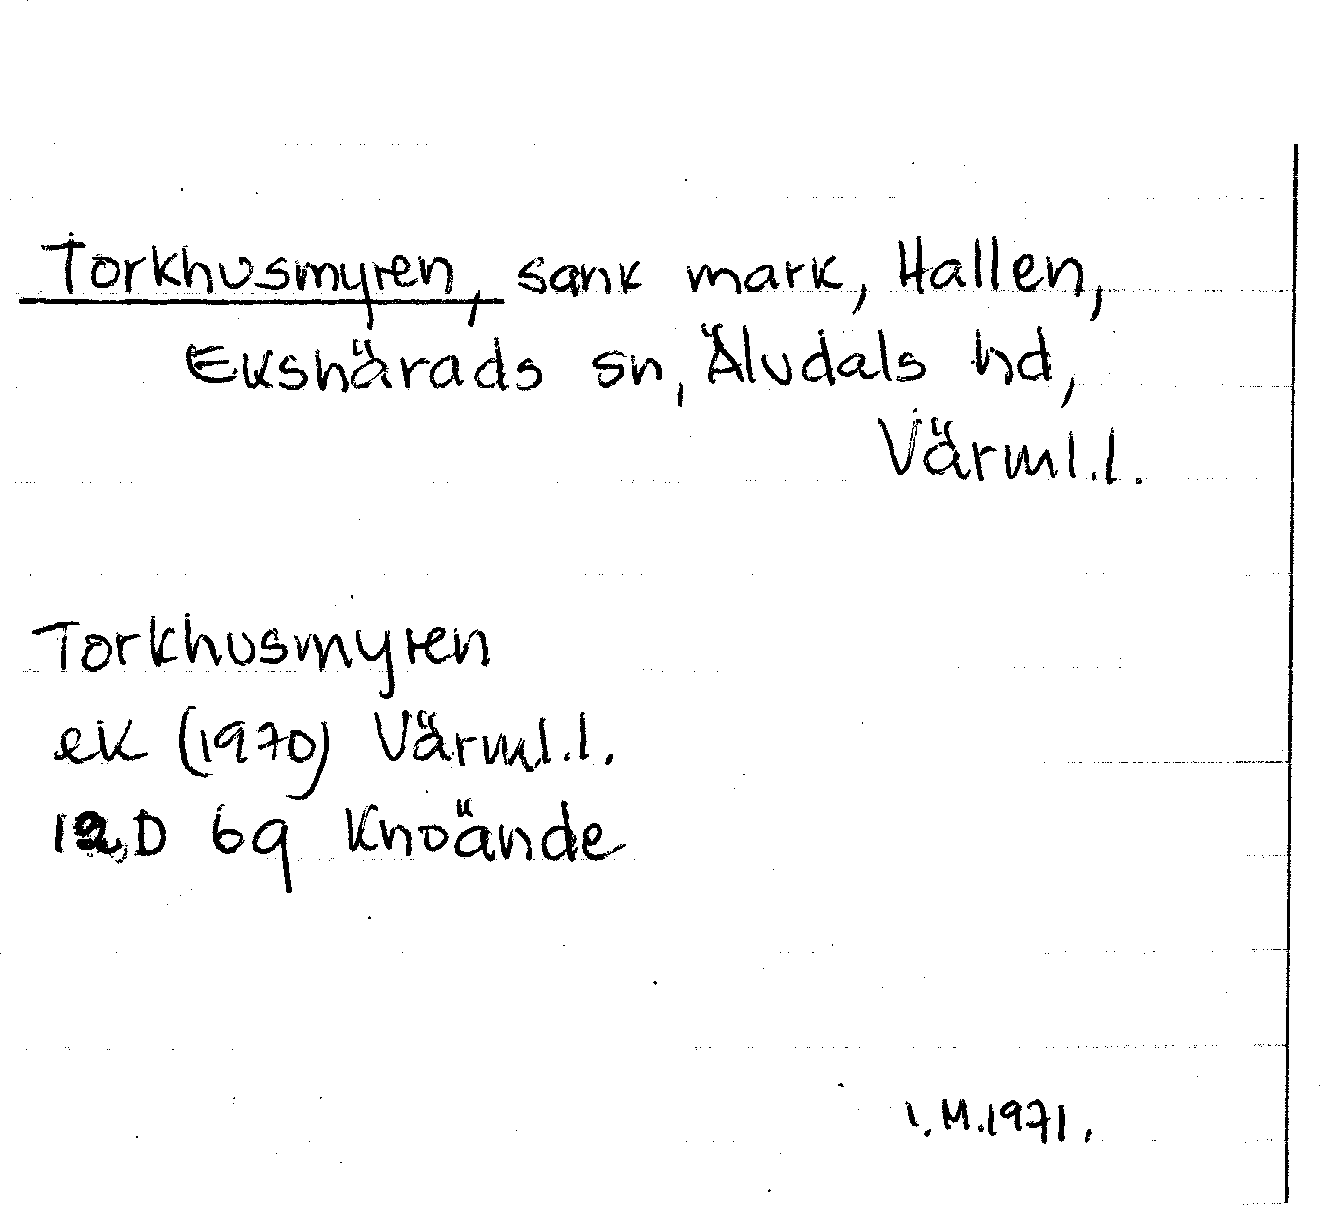 Torkhusmyren, sank mark, Hallen,
Ekshärads sn, Äludals hd,
Värml.l.
Torkhusmyren
ek (1970) Värml.l.
12D 6q Knoände
I.M.1971.